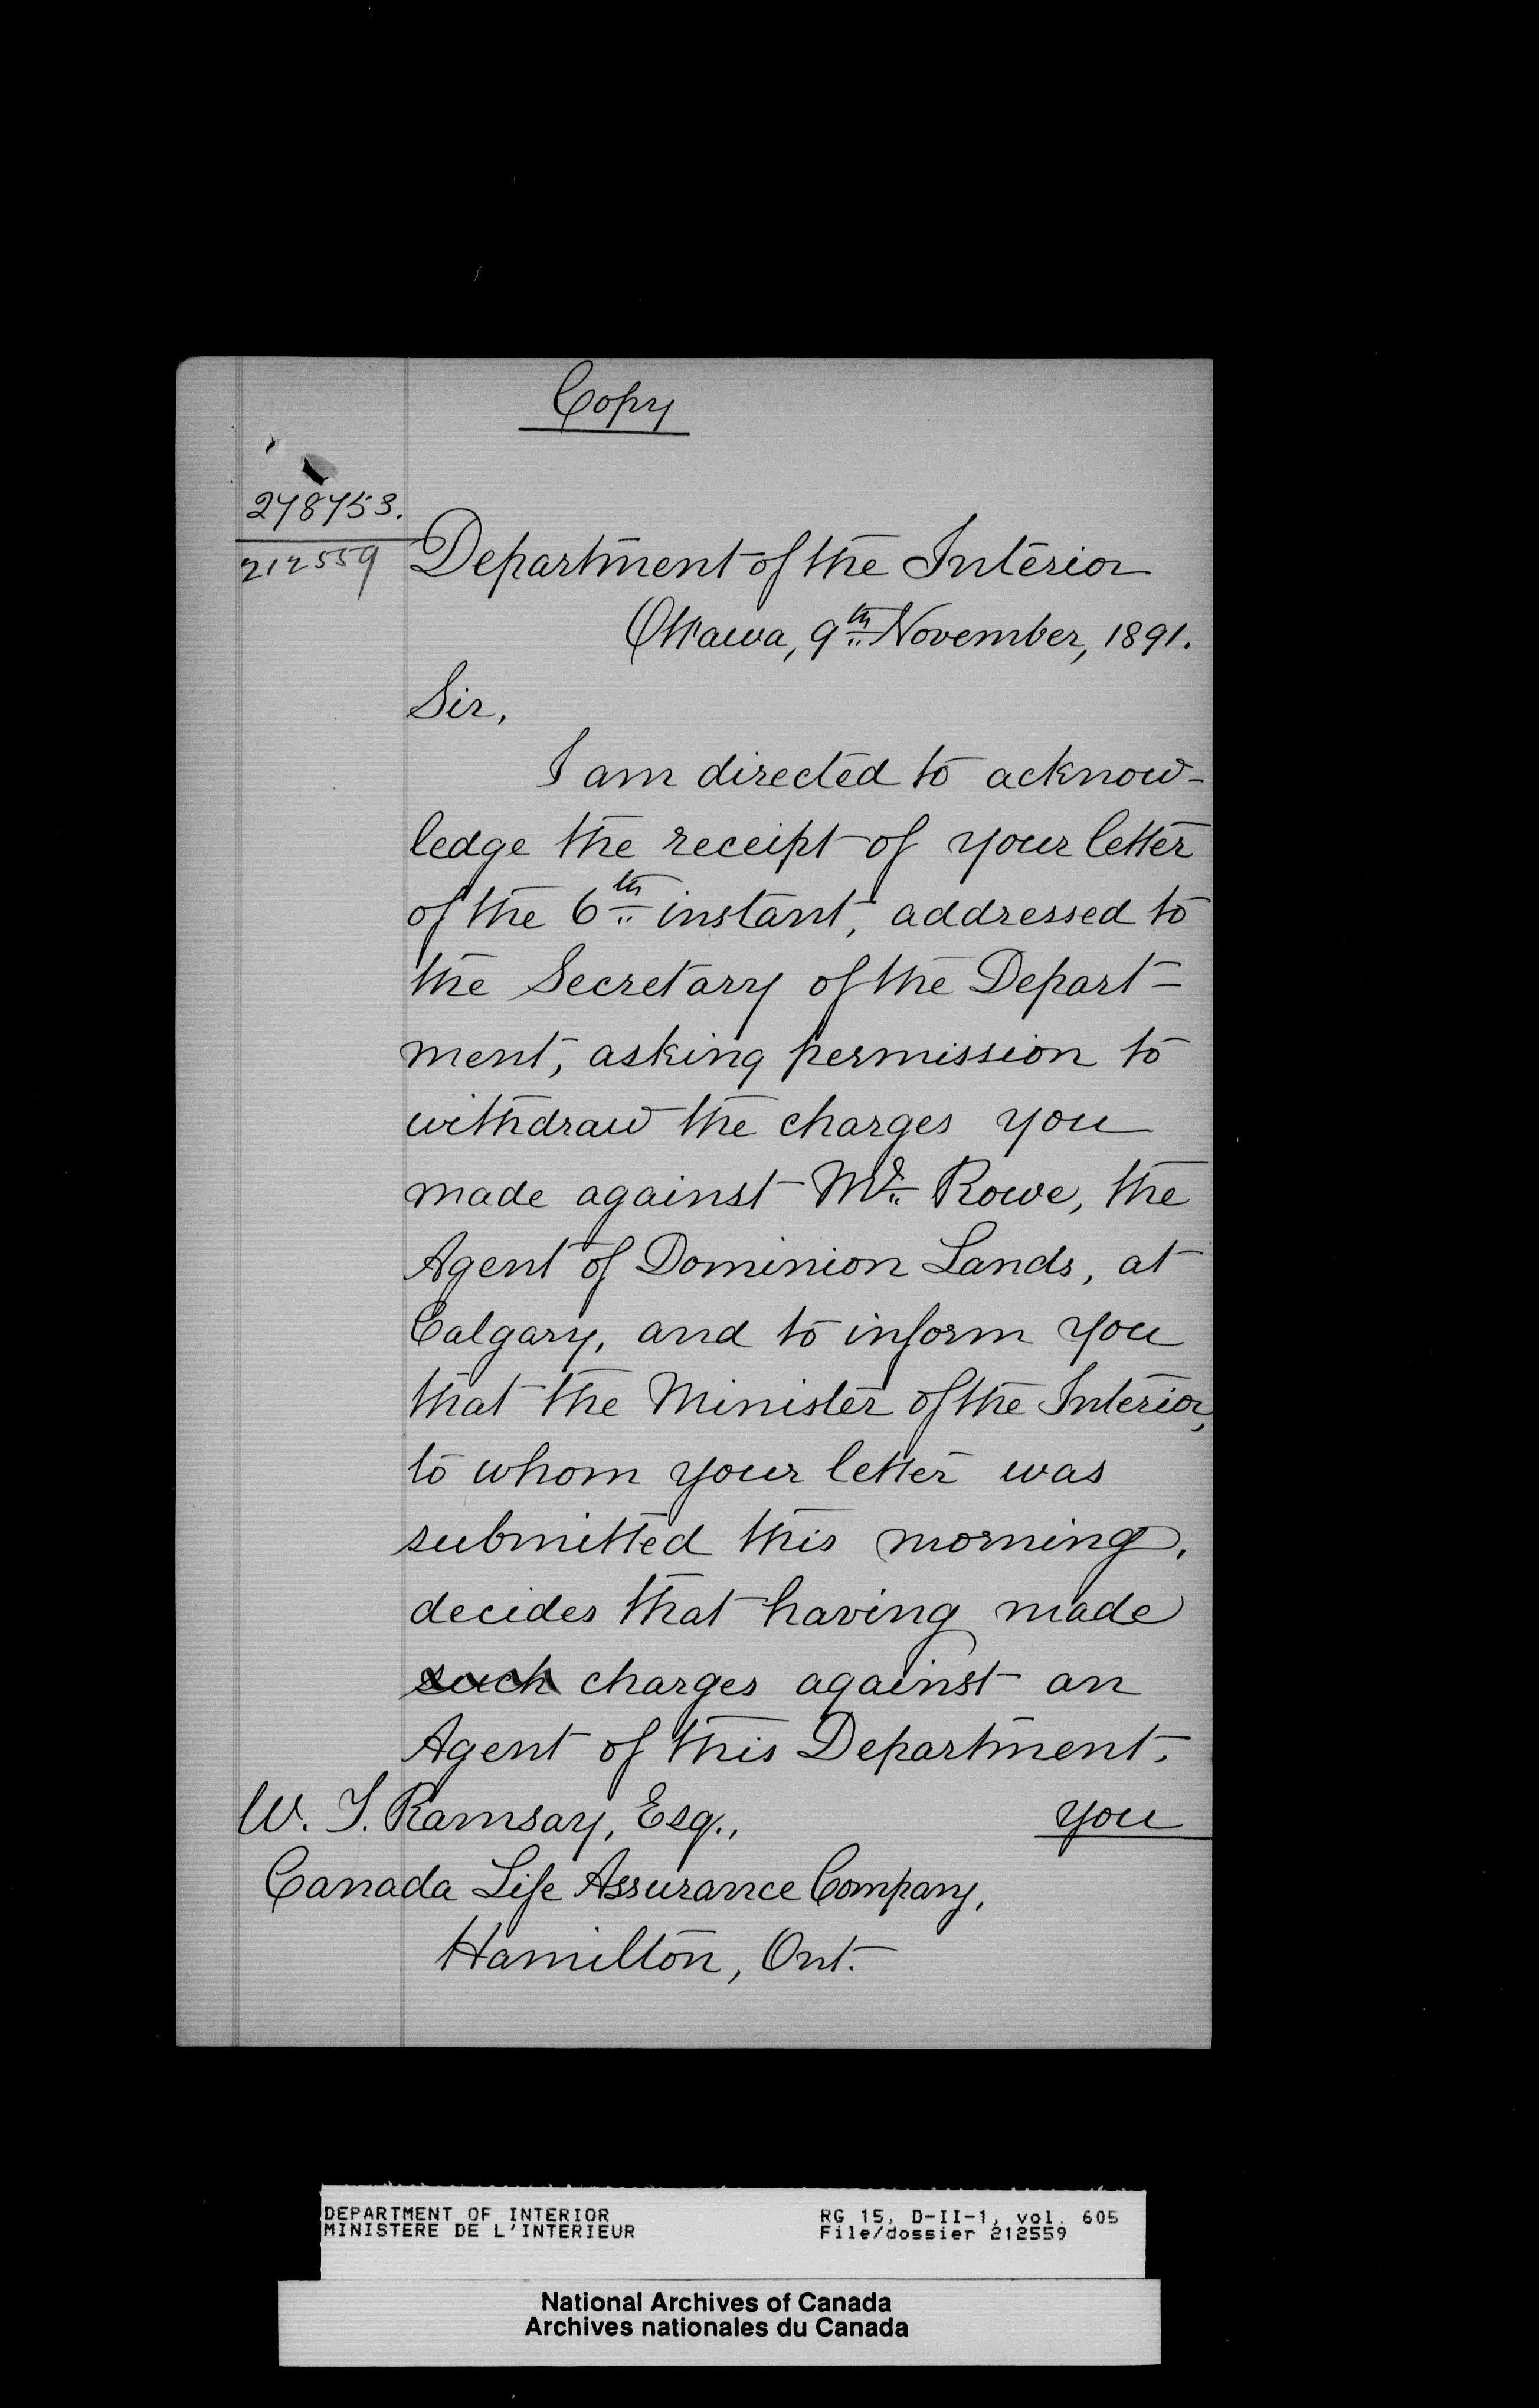 Copy
278753.
212559
Department of the Interior
Ottawa, 9th November, 1891.
Sir,
I am directed to acknow-
ledge the receipt of your letter
of the 6th instant, addressed to
the Secretary of the Depart-
ment, asking permission to
withdraw the charges you
made against Mr. Rowe, the
Agent of Dominion Lands, at
Calgary, and to inform you
that the Minister of the Interior,
to whom your letter was
submitted this morning,
decides that having made
such charges against an
Agent of this Department,
you
W. T. Ramsay, Esq.,
Canada Life Assurance Company,
Hamilton, Ont.
DEPARTMENT OF INTERIOR
MINISTERE DE L'INTERIEUR
RG 15, D-II-1, vol. 605
File/dossier 212559
National Archives of Canada
Archives nationales du Canada